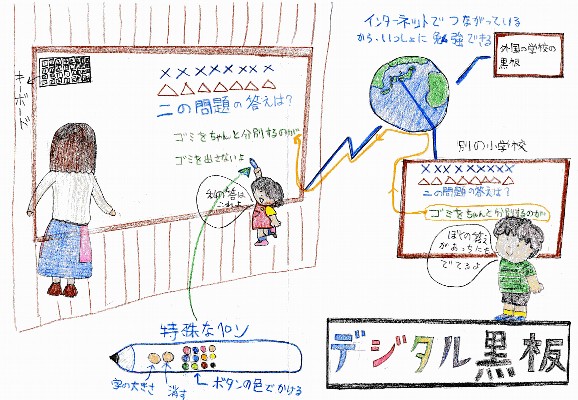 インターネットでつながっている
から、いっしょに勉強できる
外国の学校の
黒板
キーボード
××××××××
△△△△△△△
この問題の答えは?
ゴミをちゃんと分別するのが
ゴミを出さないよ
私の答は
これよ
別の小学校
×××××××
△△△△△△△△
この問題の答えは?
ゴミをちゃんと分別するのが
ぼくの答え
があっちにも
でてるよ
特殊なペン
字の大きさ
消す
ボタンの色でかける
デジタル黒板